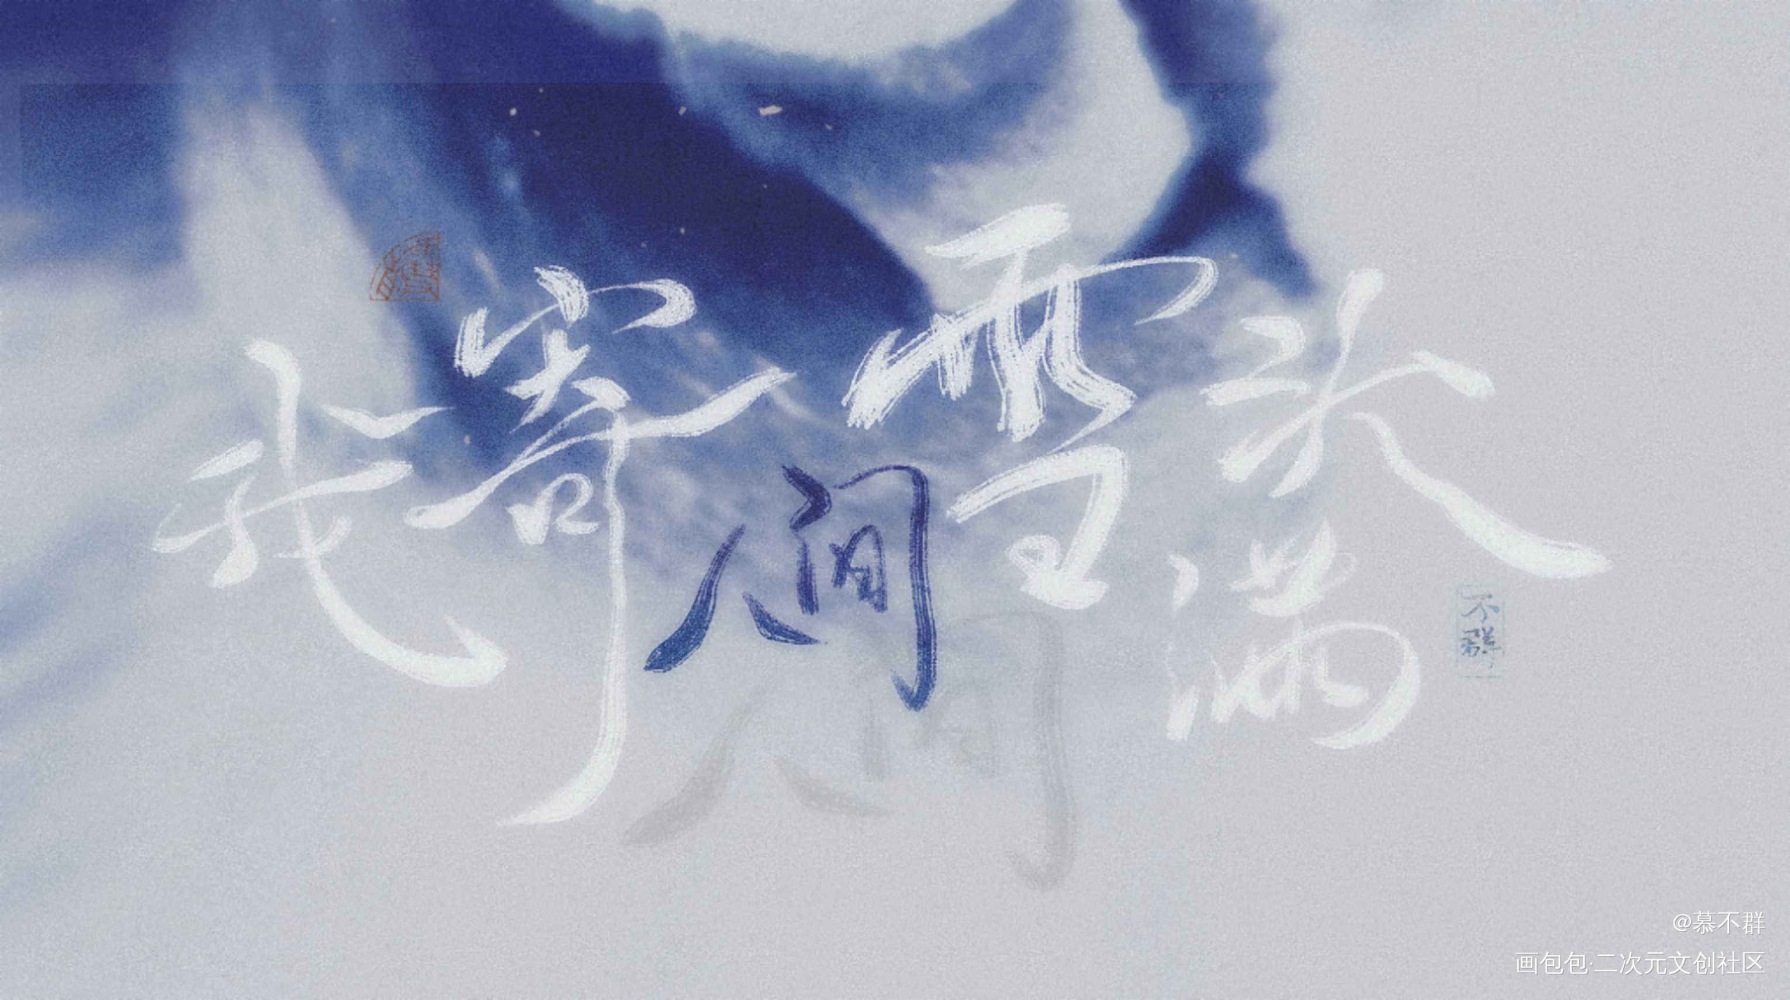 我寄人间雪满头
不群
@慕不群
画包包·二次元文创社区